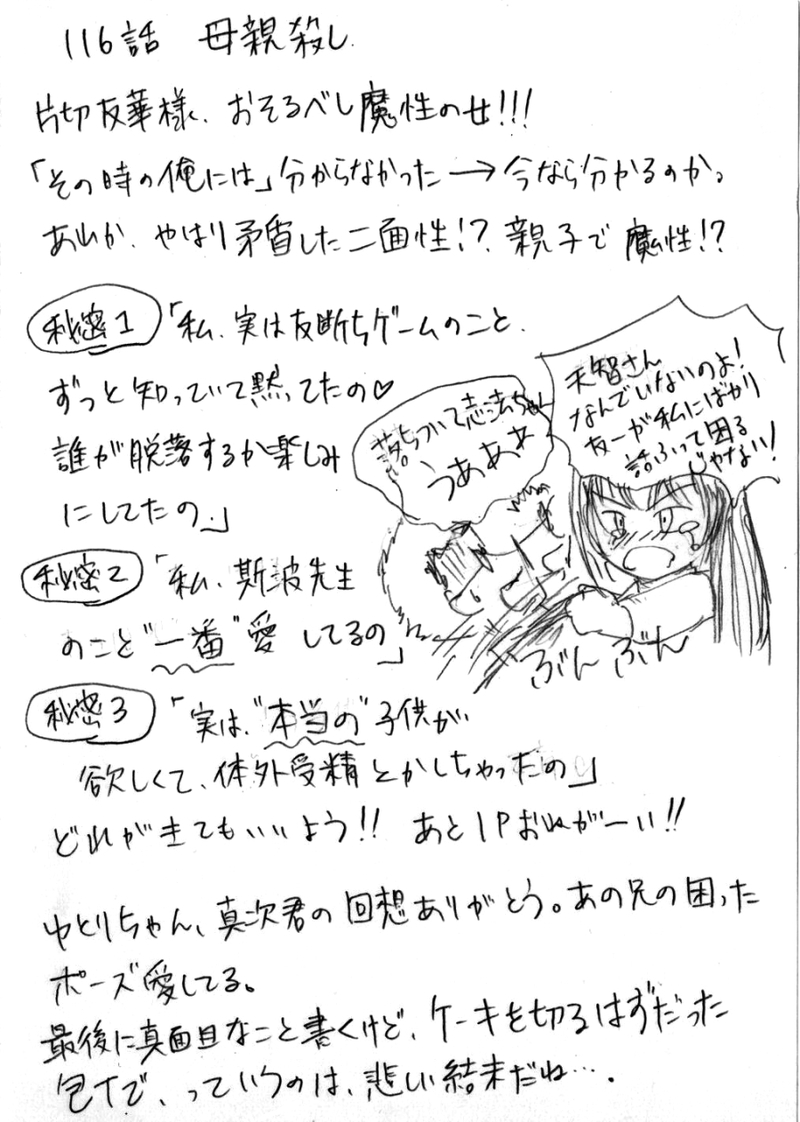 116話 母親殺し
片切友華様、おそるべし魔性の女!!!
「その時の俺には」分からなかった→今なら分かるのか。
あれか、やはり矛盾した二面性!? 親子で魔性!?
秘密1「私、実は友断ちゲームのこと、
ずっと知っていて黙ってたの♡
誰が脱落するか楽しみ
にしてたの。」
秘密2「私、斯波先生
のこと"一番"愛してるの」
秘密3「実は、"本当の"子供が
欲しくて、体外受精とかしちゃったの」
どれがきてもいいよう!! あと1Pおねがーい!!
天智さん
なんでいないのよ!
友一が私にばかり
話ふって困る
じゃない!
落ちついて志法ちゃん
うあああ
ぶんぶん
ゆとりちゃん、真次君の回想ありがとう。あの兄の困った
ポーズ愛してる。
最後に真面目なこと書くけど、ケーキを切るはずだった
包丁で、っていうのは、悲しい結末だね…。